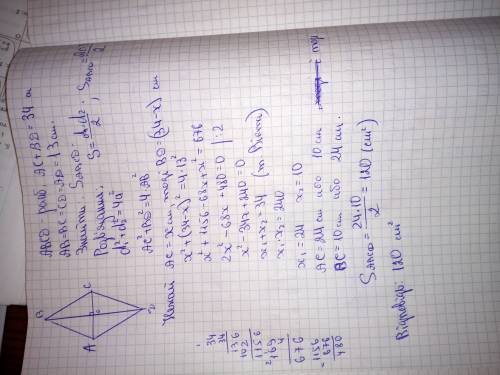 ABCD ромб AC+BD=34 см
AB=BC=CD=AD=13 см.
Знайти: S_ABCD.
Розв'язання:
d₁²+d₂²=4a² S=d₁d₂/2, S_ABCD=
AC²+BD²=4·AB²
Нехай AC=x см, тоді BD=(34-x) см
x²+(34-x)²=4·13²
x²+1156-68x+x²=676
2x²-68x+480=0 |:2
x²-34x+240=0
x₁+x₂=34 (т. Вієта)
x₁·x₂=240
x₁=24 x₂=10
AC=24 см або 10 см
BC=10 см або 24 см.
S_ABCD=24·10/2=120 (см²)
Відповідь: 120 см²
B
A
C
O
D
34
34
136
102
1156
169
4
676
1156
676
480